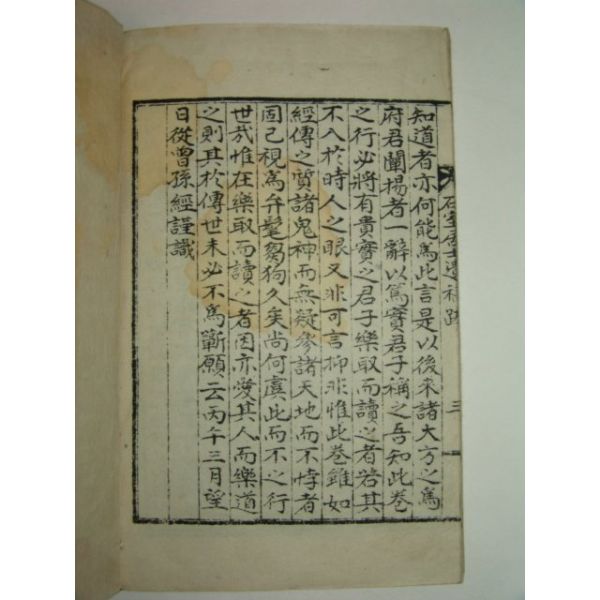 知道者亦何能爲此言是以後来諸大方之爲
府君闡揚者一辭以篤實君子稱之吾知此卷
之行必將有貴實之君子樂取而讀之者若其
不入於時人之眼又非可言抑非惟此卷雖如
經傳之質諸鬼神而無疑參諸天地而不悖者
固已視爲弁髦芻狗久矣尚何虞此而不之行
世哉惟在樂取而讀之者因亦愛其人而樂道
之則其於傳世未必不爲斷願云丙午三月望
日從曾孫經謹識
居士遺稿跋
三